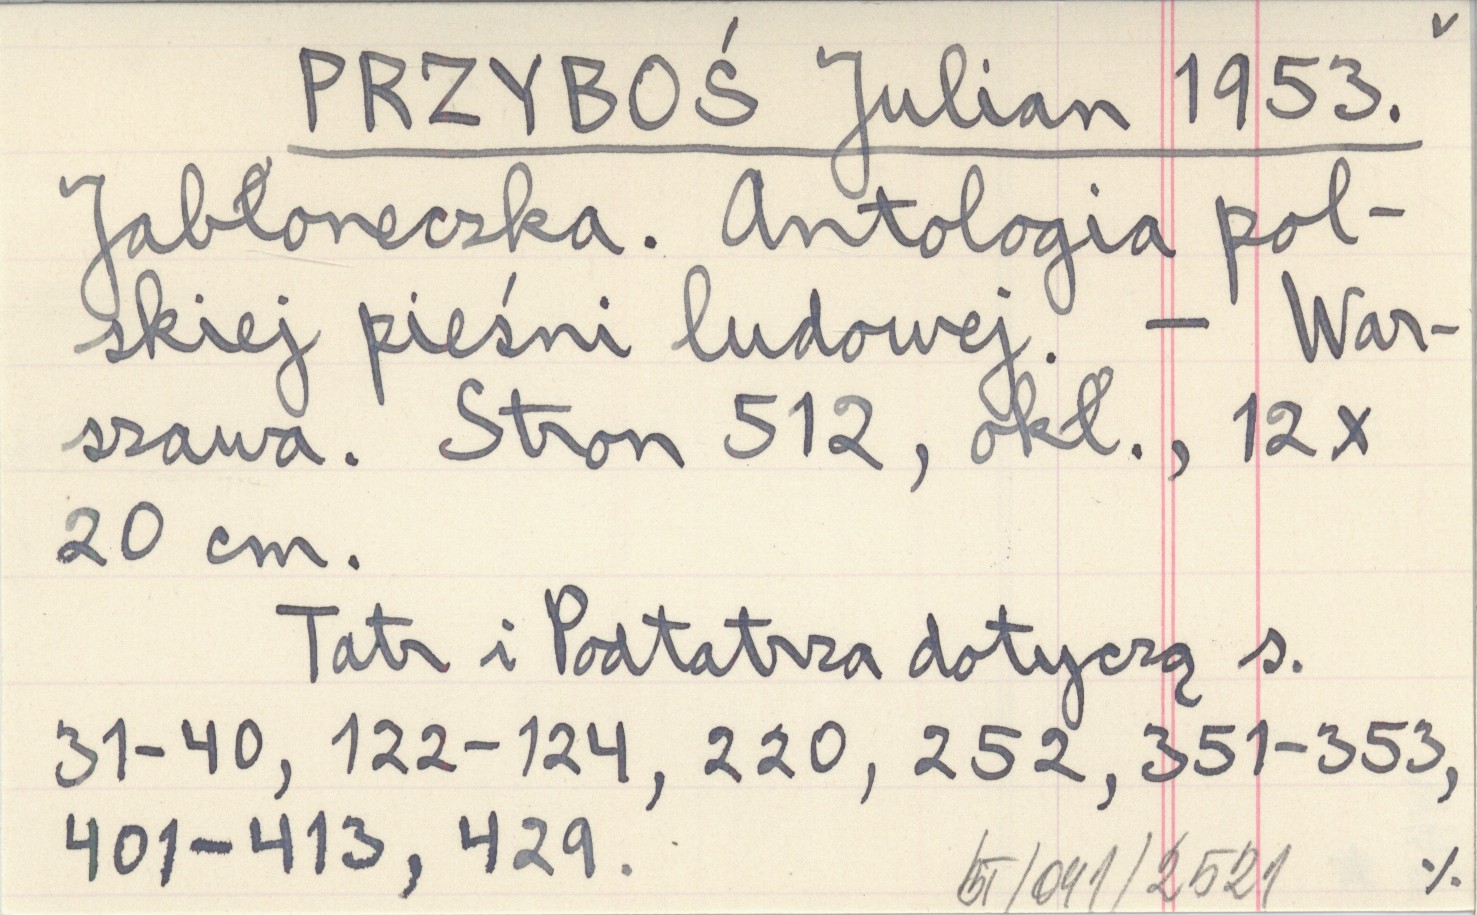 v
PRZYBOŚ Julian 1953.
Jabłoneczka. Antologia pol-
skiej pieśni ludowej. — War-
szawa. Stron 512, okł., 12 x
20 cm.
Tatr i Podtatrza dotyczą s.
31-40, 122-124, 220, 252, 351-353,
401-413, 429.
/041/2521 ./.